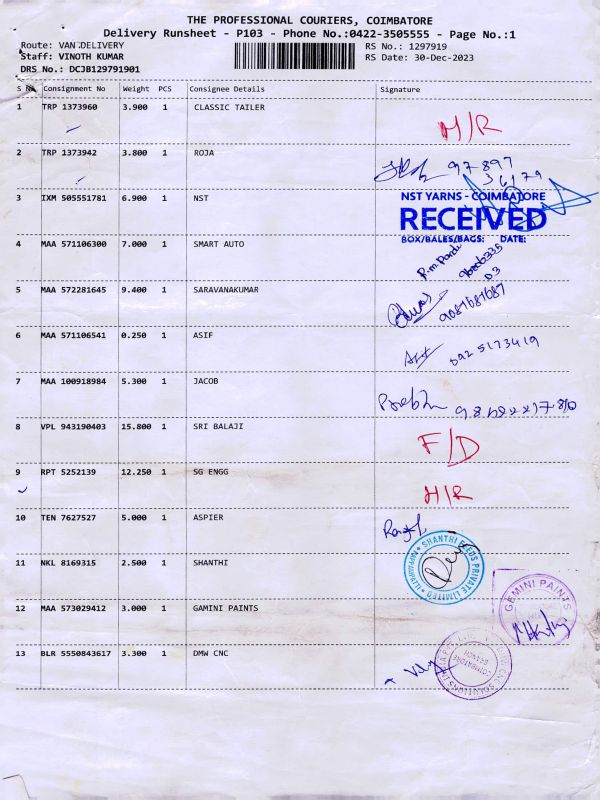 THE PROFESSIONAL COURIERS, COIMBATORE
Delivery Runsheet - P103 - Phone No.:0422-3505555 - Page No.:1
Route: VAN DELIVERY RS No.: 1297919
Staff: VINOTH KUMAR RS Date: 30-Dec-2023
DRS No.: DCJB129791901
S No Consignment No Weight PCS Consignee Details Signature
1 TRP 1373960 3.900 1 CLASSIC TAILER
H/R
2 TRP 1373942 3.800 1 ROJA
97897
36179
3 IXM 505551781 6.900 1 NST
NST YARNS - COIMBATORE
RECEIVED
BOX/BALES/BAGS: DATE:
4 MAA 571106300 7.000 1 SMART AUTO
5 MAA 572281645 9.400 1 SARAVANAKUMAR
9087687687
6 MAA 571106541 0.250 1 ASIF
7 MAA 100918984 5.300 1 JACOB
8 VPL 943190403 15.800 1 SRI BALAJI
F/D
9 RPT 5252139 12.250 1 SG ENGG
H/R
10 TEN 7627527 5.000 1 ASPIER
11 NKL 8169315 2.500 1 SHANTHI
SHANTHI FEEDS PRIVATE LIMITED
12 MAA 573029412 3.000 1 GAMINI PAINTS
GEMINI PAINTS
13 BLR 5550843617 3.300 1 DMW CNC
COIMBATORE
BRANCH